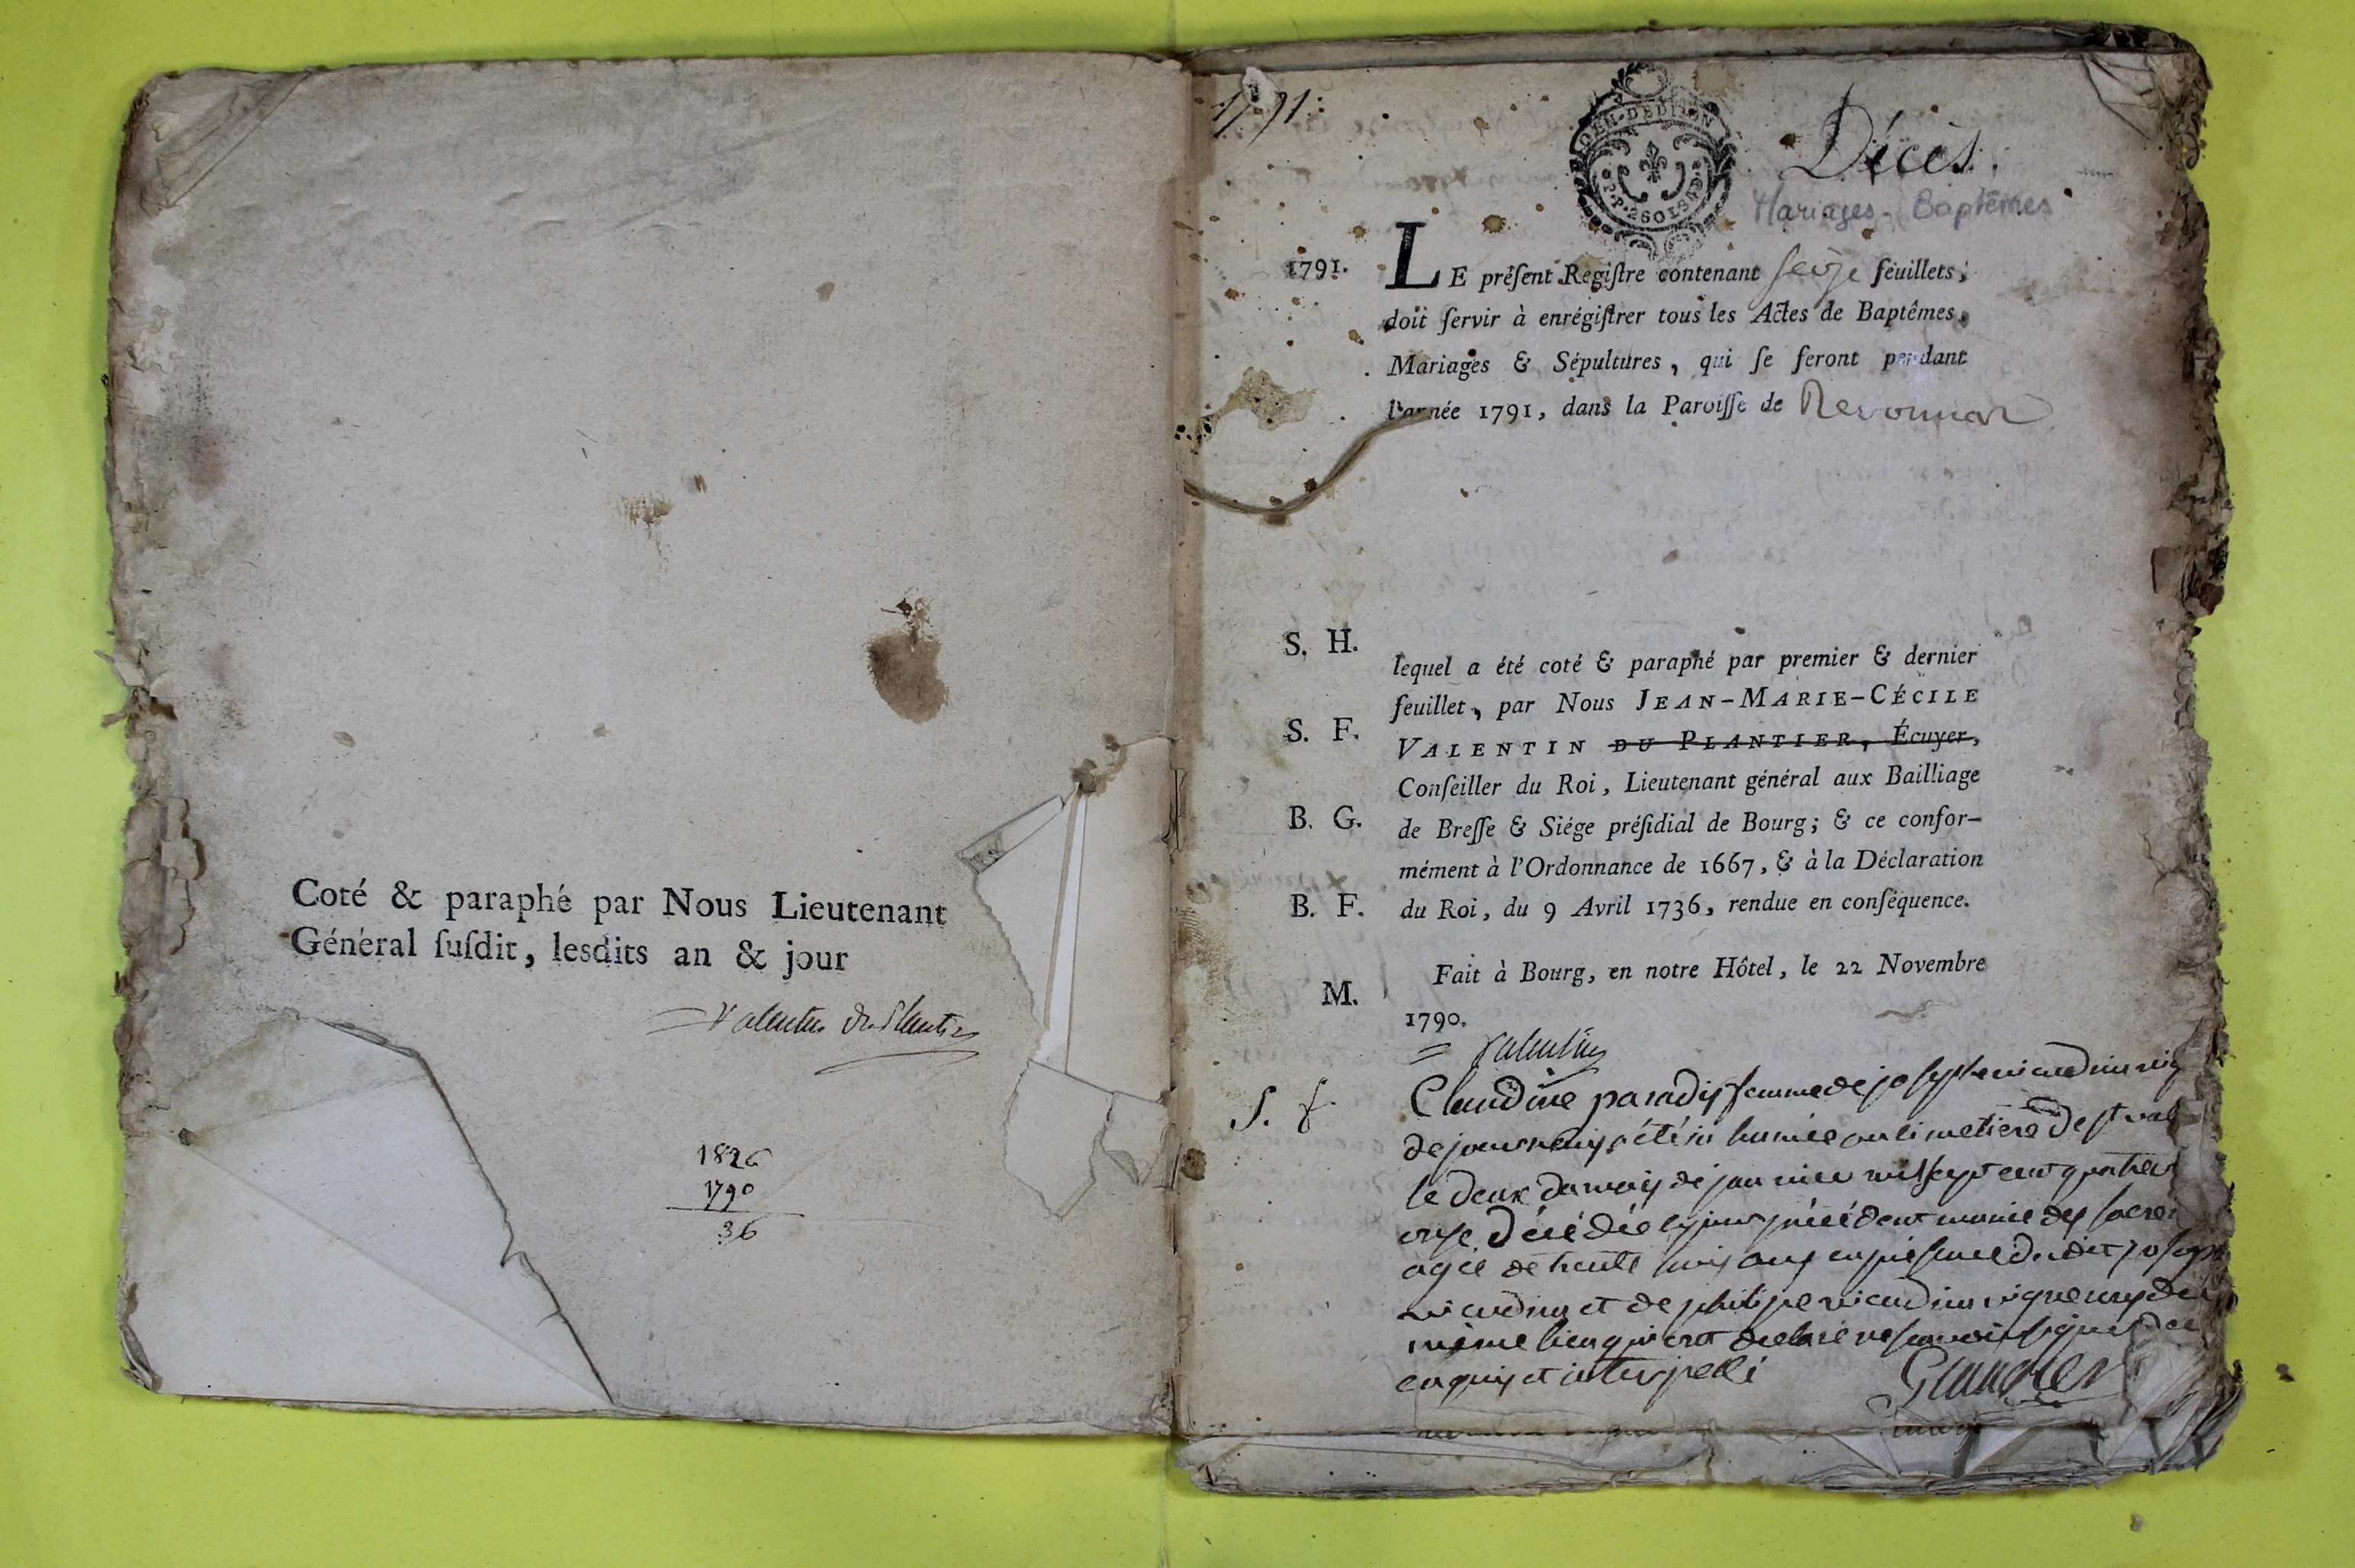 Coté & paraphé par Nous Lieutenant
Général ſuſdit, lesdits an & jour
Valentin du Plantier
1826
1790
36
1791.
GEN. DE DIJON
Décès.
Mariages - Baptêmes
1791.
LE préſent Regiſtre contenant ſeize feuillets,
doit ſervir à enrégiſtrer tous les Actes de Baptêmes,
Mariages & Sépultures, qui ſe feront pendant
l'année 1791, dans la Paroiſſe de Revonnas
S. H.
lequel a été coté & paraphé par premier & dernier
feuillet, par Nous JEAN-MARIE-CÉCILE
S. F.
VALENTIN DU PLANTIER, Écuyer,
Conſeiller du Roi, Lieutenant général aux Bailliage
B. G.
de Breſſe & Siége préſidial de Bourg; & ce confor-
mément à l'Ordonnance de 1667, & à la Déclaration
B. F.
du Roi, du 9 Avril 1736, rendue en conſéquence.
Fait à Bourg, en notre Hôtel, le 22 Novembre
M.
1790.
Valentin
S. f.
Claudine paradis femme de joseph
de a été inhumée au cimetiere de st
le deux du mois de janvier mil sept cent quatre
onze décédée le jour précédent munie des
agée de trente ans en présence du dit joseph
et de philippe vigneron
même lieu qui ont déclaré ne savoir signer de ce
enquis et interpellé